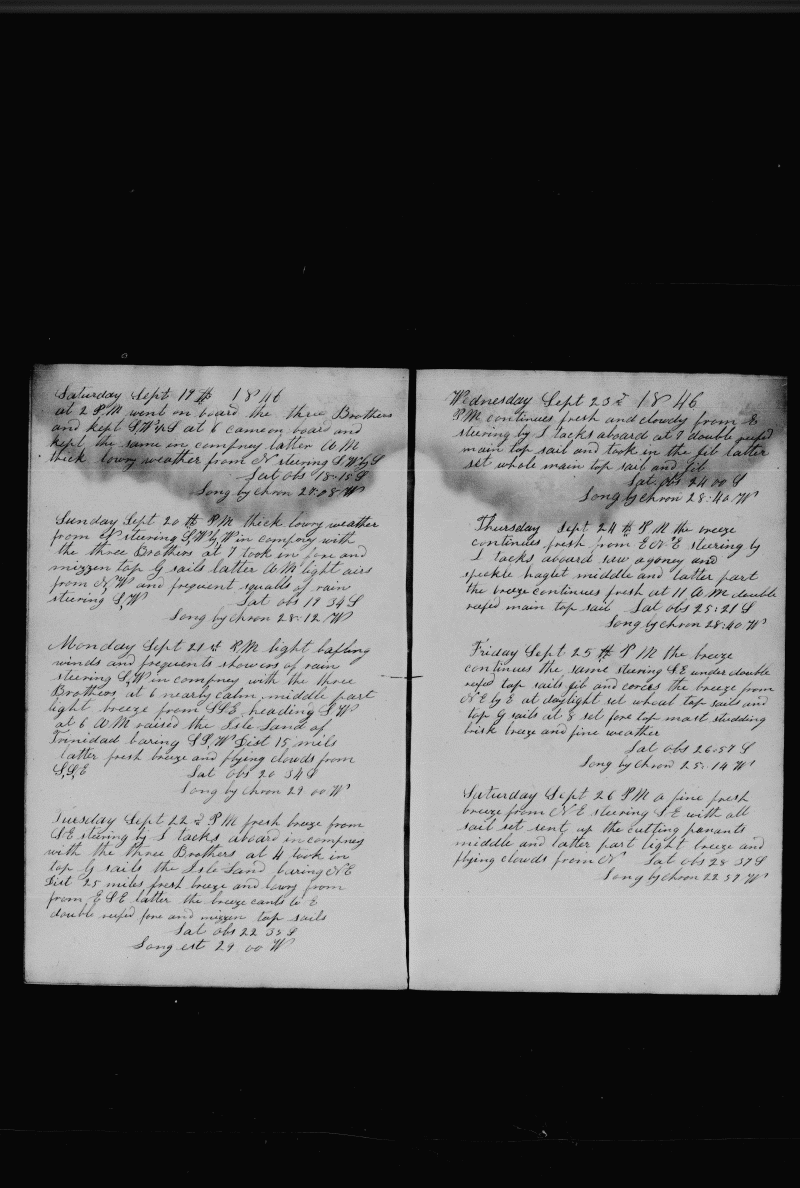 Saturday Sept 19th 1846
at 2 P M went on board the three Brothers
and kept S,W by S at 6 came on board and
kept the same in compney latter A M
thick lowry weather from N steering S,W by S
Lat obs 18-15 S
Long by chron 28-08 W
Sunday Sept 20th P M thick lowry weather
from N steering S,W by W in compny with
the three Brothers at 7 took in fore and
mizzen top G sails latter A M light airs
from N,W and frequent squalls of rain
steering S,W Lat obs 19 34 S
Long by chron 28-12 W
Monday Sept 21st P,M light bafling
winds and frequents showers of rain
steering S,W in compney with the three
Brothers, at 6 nearly calm, middle part
light breeze from S S E, heading S W
at 6 A M raised the Isle Land of
Trinidad baring S S,W Dist 15 mils
latter fresh breeze and flying clowds from
S,S,E Lat obs 20 34 S
Long by chron 29 00 W
Tuesday Sept 22d P M fresh breeze from
S E steering by S tacks aboard in compney
with the three Brothers at 4 took in
top G sails the Isle Land baring N E
Dist 25 miles fresh breeze and lowry from
from E S E latter the breeze cants to E
double reefd fore and mizzen top sails
Lat obs 22 35 S
Long est 29 00 W
Wednesday Sept 23d 1846
P M continues fresh and clowdy from E
steering by S tacks aboard at 7 double reefed
main top sail and took in the jib latter
set whole main top sail and jib
Lat obs 24 00 S
Long by chron 28-40 W
Thursday Sept 24th P M the breeze
continues fresh from E N E steering by
S tacks aboard saw agoney and
speckle haglet middle and latter part
the breeze continues fresh at 11 A M double
reefd main top sail Lat obs 25-21 S
Long by chron 28-40 W
Friday Sept 25th P M the breeze
continues the same steering S E under double
reefd top sails jib and corces the breeze from
N E by E at daylight set wheat top sails and
top G sails at 8 set fore top mast studding
brisk breeze and fine weather
Lat obs 26-57 S
Long by chron 25-14 W
Saturday Sept 26 P M a fine fresh
breeze from N E steering S E with all
sail set sent up the cutting penants
middle and latter part light breeze and
flying clowds from N Lat obs 28 37 S
Long by chron 22 57 W